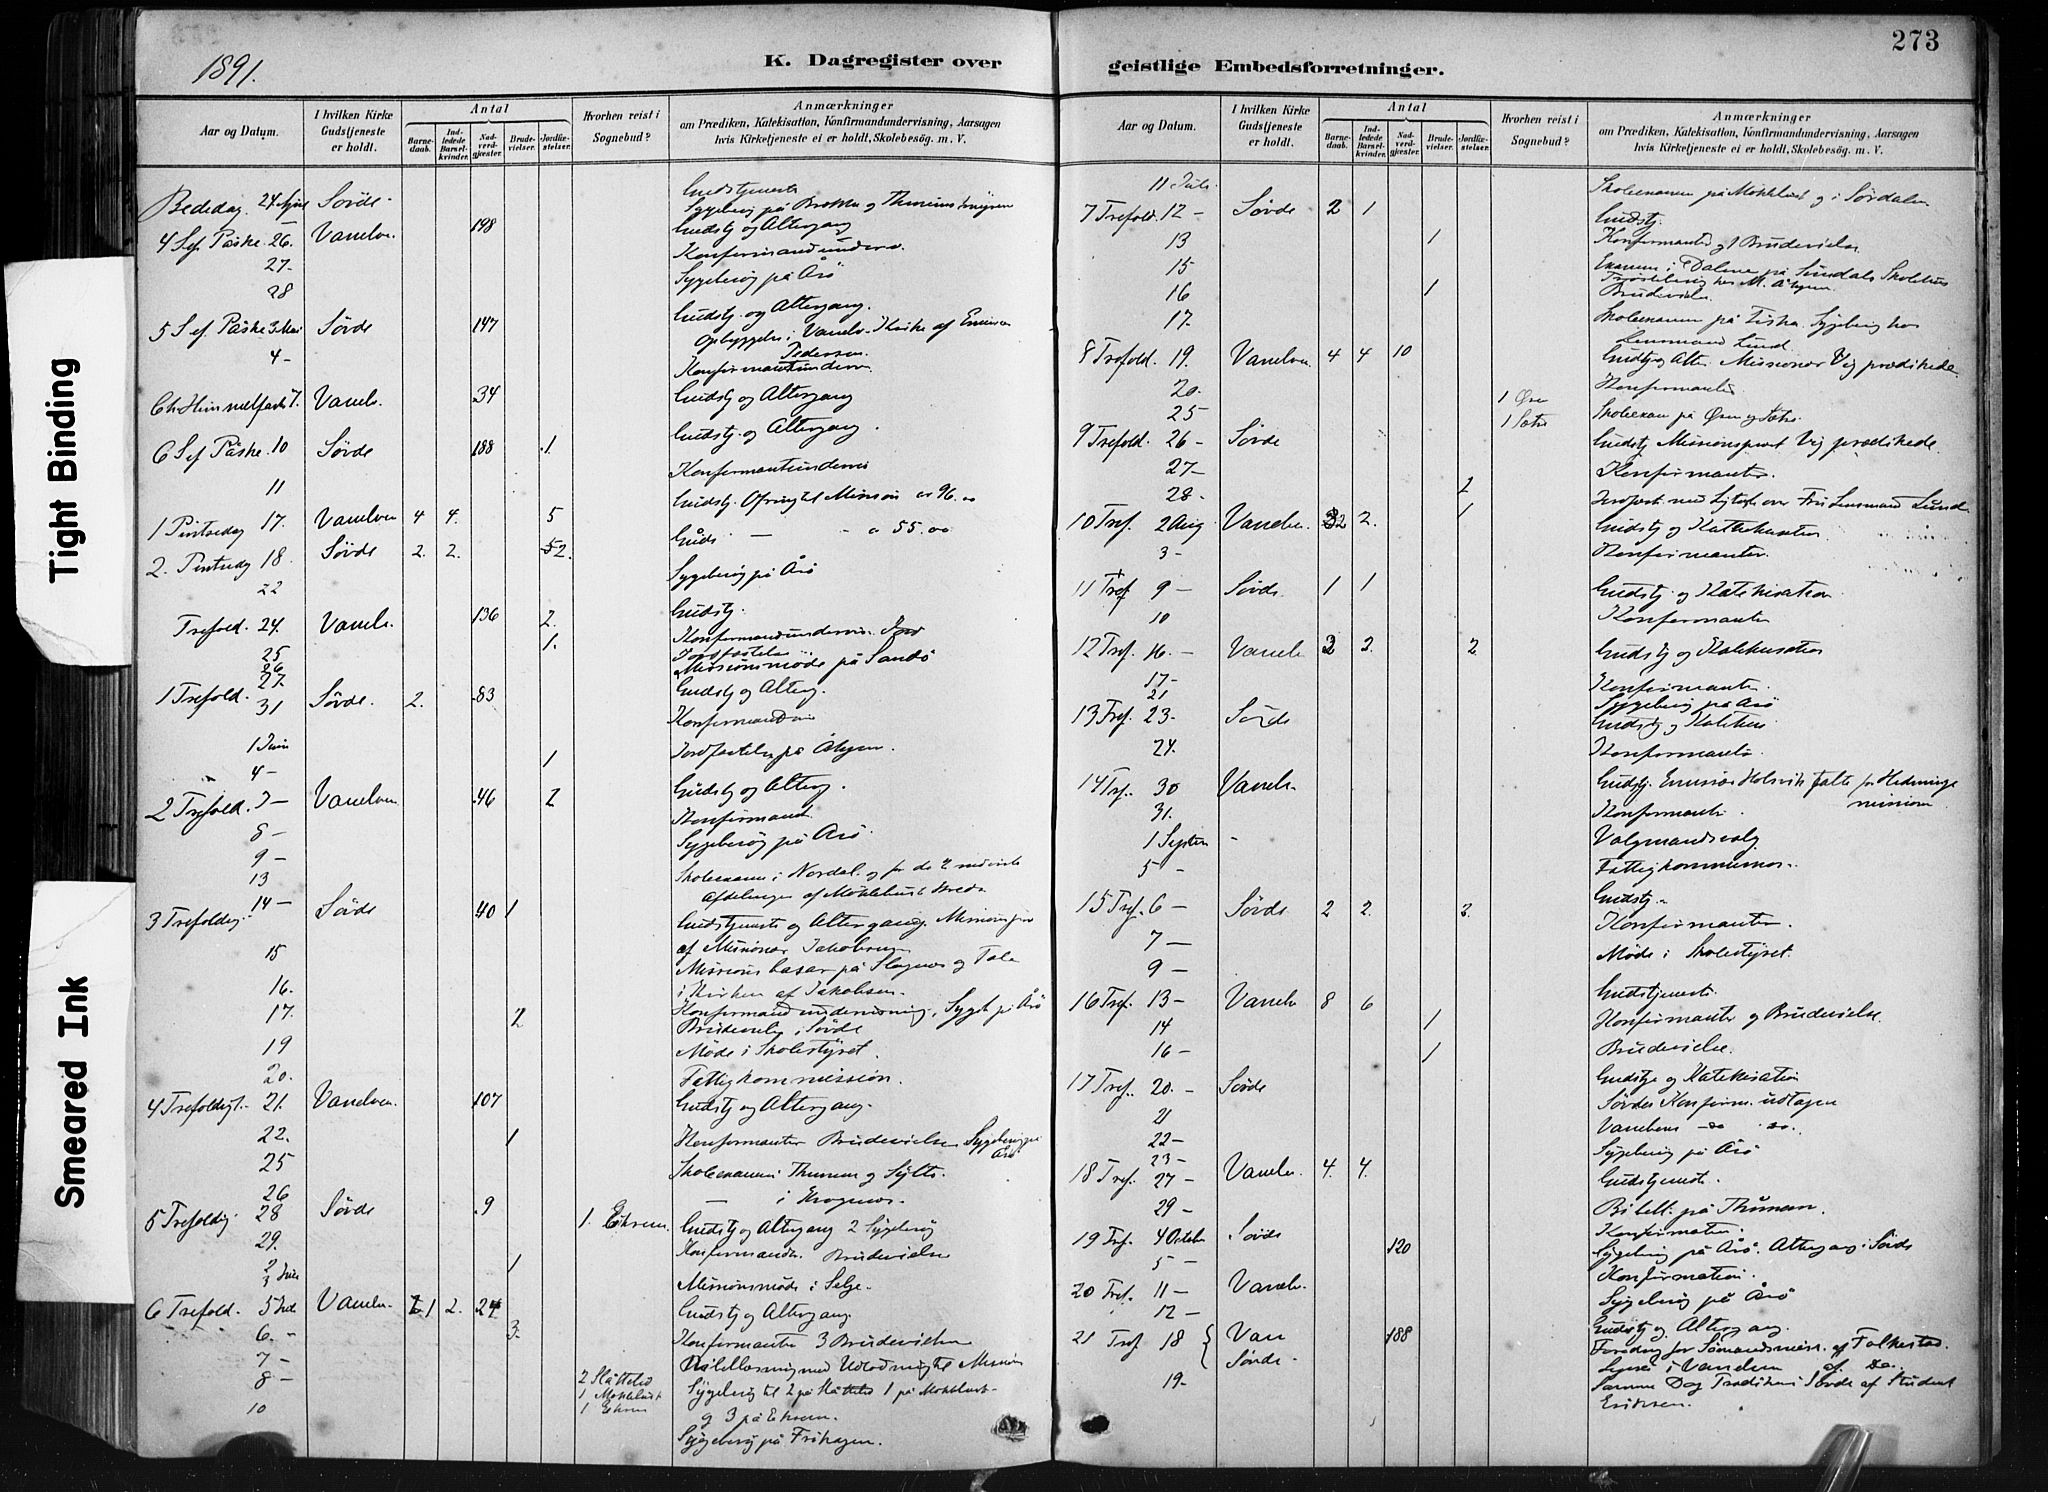 1891.
K. Dagregister over
geistlige Embedsforretninger.
273
Tight Binding
Smeared Ink
Aar og Datum.
I hvilken Kirke Gudstjeneste er holdt.
Antal
Barnedaab.
Indledede Barselkvinder.
Nadverdgjæster.
Brudevielser.
Jordfæstelser.
Hvorhen reist i Sognebud?
Anmærkninger
om Prædiken, Katekisation, Konfirmandundervisning, Aarsagen
hvis Kirketjeneste ei er holdt, Skolebesög. m. V.
Bededag 24 April Sövde Gudstjeneste
4 S ef Påske 26. Vanelven 198 Gudstj og Altergang
27. Konfirmandunderv.
28 Sygebesög på Årö
5 S ef Påske 3 Mai Sövde 147 Gudstj. og Altergang.
4 - Pedersen.
Konfirmantunderv
Ch Himmelfart 7. Vanelv. 34 Gudstj og Altergang
6 S ef Påske 10 Sövde 188 1 Gudstj. og Altergang.
11 Konfirmantunderv
1 Pintsedag 17. Vanelven 4 4. 5 Gudstj. Ofring til Mission 96.
2. Pintsedag 18 Sövde 2. 2. 2. Guds — 55.00
22 Sygebesög på Årö
Trefold. 24. Vanelv. 136 2. Gudstj.
25 1. Konfirmandunderv.
26 Jordfæstelse
27. Missionsmöde på Sandö
1 Trefold. 31 Sövde. 2. 83 Gudstj og Alterg.
1 Juni Konfirmand
4 - 1 Jordfæstelse på Åhjem.
2 Trefold. 7 — Vanelven 46 2 Gudstj og Alterg.
8 — Konfirmand
9 — Sygebesög på Årö.
13 Skoleexamen i Nordal. og for de 2 nederste
Afdelinger af Möklebust Kreds
3 Trefoldig. 14 — Sövde 40 1 Gudstjeneste og Altergang.
15 af Missionær Jakobsen
Missionsbasar på Slagnes og Tale
16. i Kirken af Jakobsen.
17. 2 Konfirmandundervisning, Syget på Årö
Brudevielse i Sövde
19 Möde i Skolestyret.
20. Fattigkommission.
4 Trefoldigt. 21. Vanelven. 107 Gudstj og Altergang.
22. 1 Konfirmanter Brudevielse Sygebesög på Årö
25 Skoleexamen i Thunem og Sylte.
26 — i Krognes.
5 Trefoldig. 28 Sövde 9 1. Ekrem Gudstj og Altergang 2 Sygebesög
29. 1 Konfirmander. Brudevielse
2
3 Juli Missionsmöde i Selje.
6 Trefold. 5 Juli Vanelv. 1 2. 24 Gudstj og Altergang.
6. - 3. Konfirmanter 3 Brudevielser
7 — Bibellæsning med Udlodning til Mission
8 — 2 Slåttelid 1 Möklebust 1 Ekrem Sygebesög til 2 på Slåttelid 1 på Möklebust
og 3 på Ekrem.
10 Sygebesög på Frihagen.
Aar og Datum.
I hvilken Kirke Gudstjeneste er holdt.
Antal
Barnedaab.
Indledede Barselkvinder.
Nadverdgjæster.
Brudevielser.
Jordfæstelser.
Hvorhen reist i Sognebud?
Anmærkninger
om Prædiken, Katekisation, Konfirmandundervisning, Aarsagen
hvis Kirketjeneste ei er holdt, Skolebesög. m. V.
11 Juli. Skoleexamen på Möklebust og i Sördalen
7 Trefold. 12 — Sövde 2 1 Gudstj.
13 1 Konfirmanter og 1 Brudevielse
15 Examen i Dalene på Sundals Skolehus
16 1 Brudevielse.
17. Skoleexamen på Fiskå. Sygebesög hos
Lensmand Lund.
8 Trefold. 19. Vanelven 4 4 10 Gudstj og Alter. Missionær Vig prædikede.
20. Konfirmanter
25 1 Ören 1 Sætre Skoleexam på Ören og Sætre
9 Trefold. 26 — Sövde Gudstj Missionsprest Vig prædikede.
27 — Konfirmanter.
28. — 2 Jordfæst. med Ligtale over Fru Lensmand Lund
10 Tref. 2 Aug Vanelv. 2 2. 1 Gudstj og Katekisation
3 - Konfirmanter.
11 Tref 9 — Sövde 1 1 Gudstj og Katekisation
10 Konfirmanter
12 Tref. 16. — Vanelv 2 2. 2. Gudstj og Katekisation
17 — Konfirmanter.
21 Sygebesög på Årö
13 Tref. 23. Sövde Gudstj og Katekis
24. Konfirmanter.
14 Tref. 30 Vanelv. Gudstj. Emissær Holsvik talte for Hedningemission
31. Konfirmanter.
1 Septem Valgmandsvalg
5 — Fattigkommission.
15 Tref. 6 — Sövde 2 2. 2. Gudstj.
7 — Konfirmanter.
9 — Möde i Skolestyret.
16 Tref. 13 — Vanelv 8 6 Gudstjeneste.
14 1 Konfirmanter og Brudevielse.
16 — 1 Brudevielse.
17 Tref. 20. — Sövde Gudstje og Katekisation
21 Sövdes Konfirm. udtagen
22 — Vanelvens do do.
23 — Sygebesög på Årö
18 Tref. 27 — Vanelv. 4. 4. Gudstjeneste.
29 — Bibell. på Thunem.
19 Tref. 4 October Sövde 120 Konfirmation.
Sygebesög på Årö. Altergang i Sövde
5 — Konfirmation.
20 Tref. 11 — Vanelv. Sygebesög på Årö
12 —
21 Tref 18 { Van Sövde. 188 Gudstj og Altergang.
Foredrag for Sömandsmiss. af Falkestad.
19 — i Vanelven af do.
Samme Dag Prædiken i Sövde af Student
Eriksen.